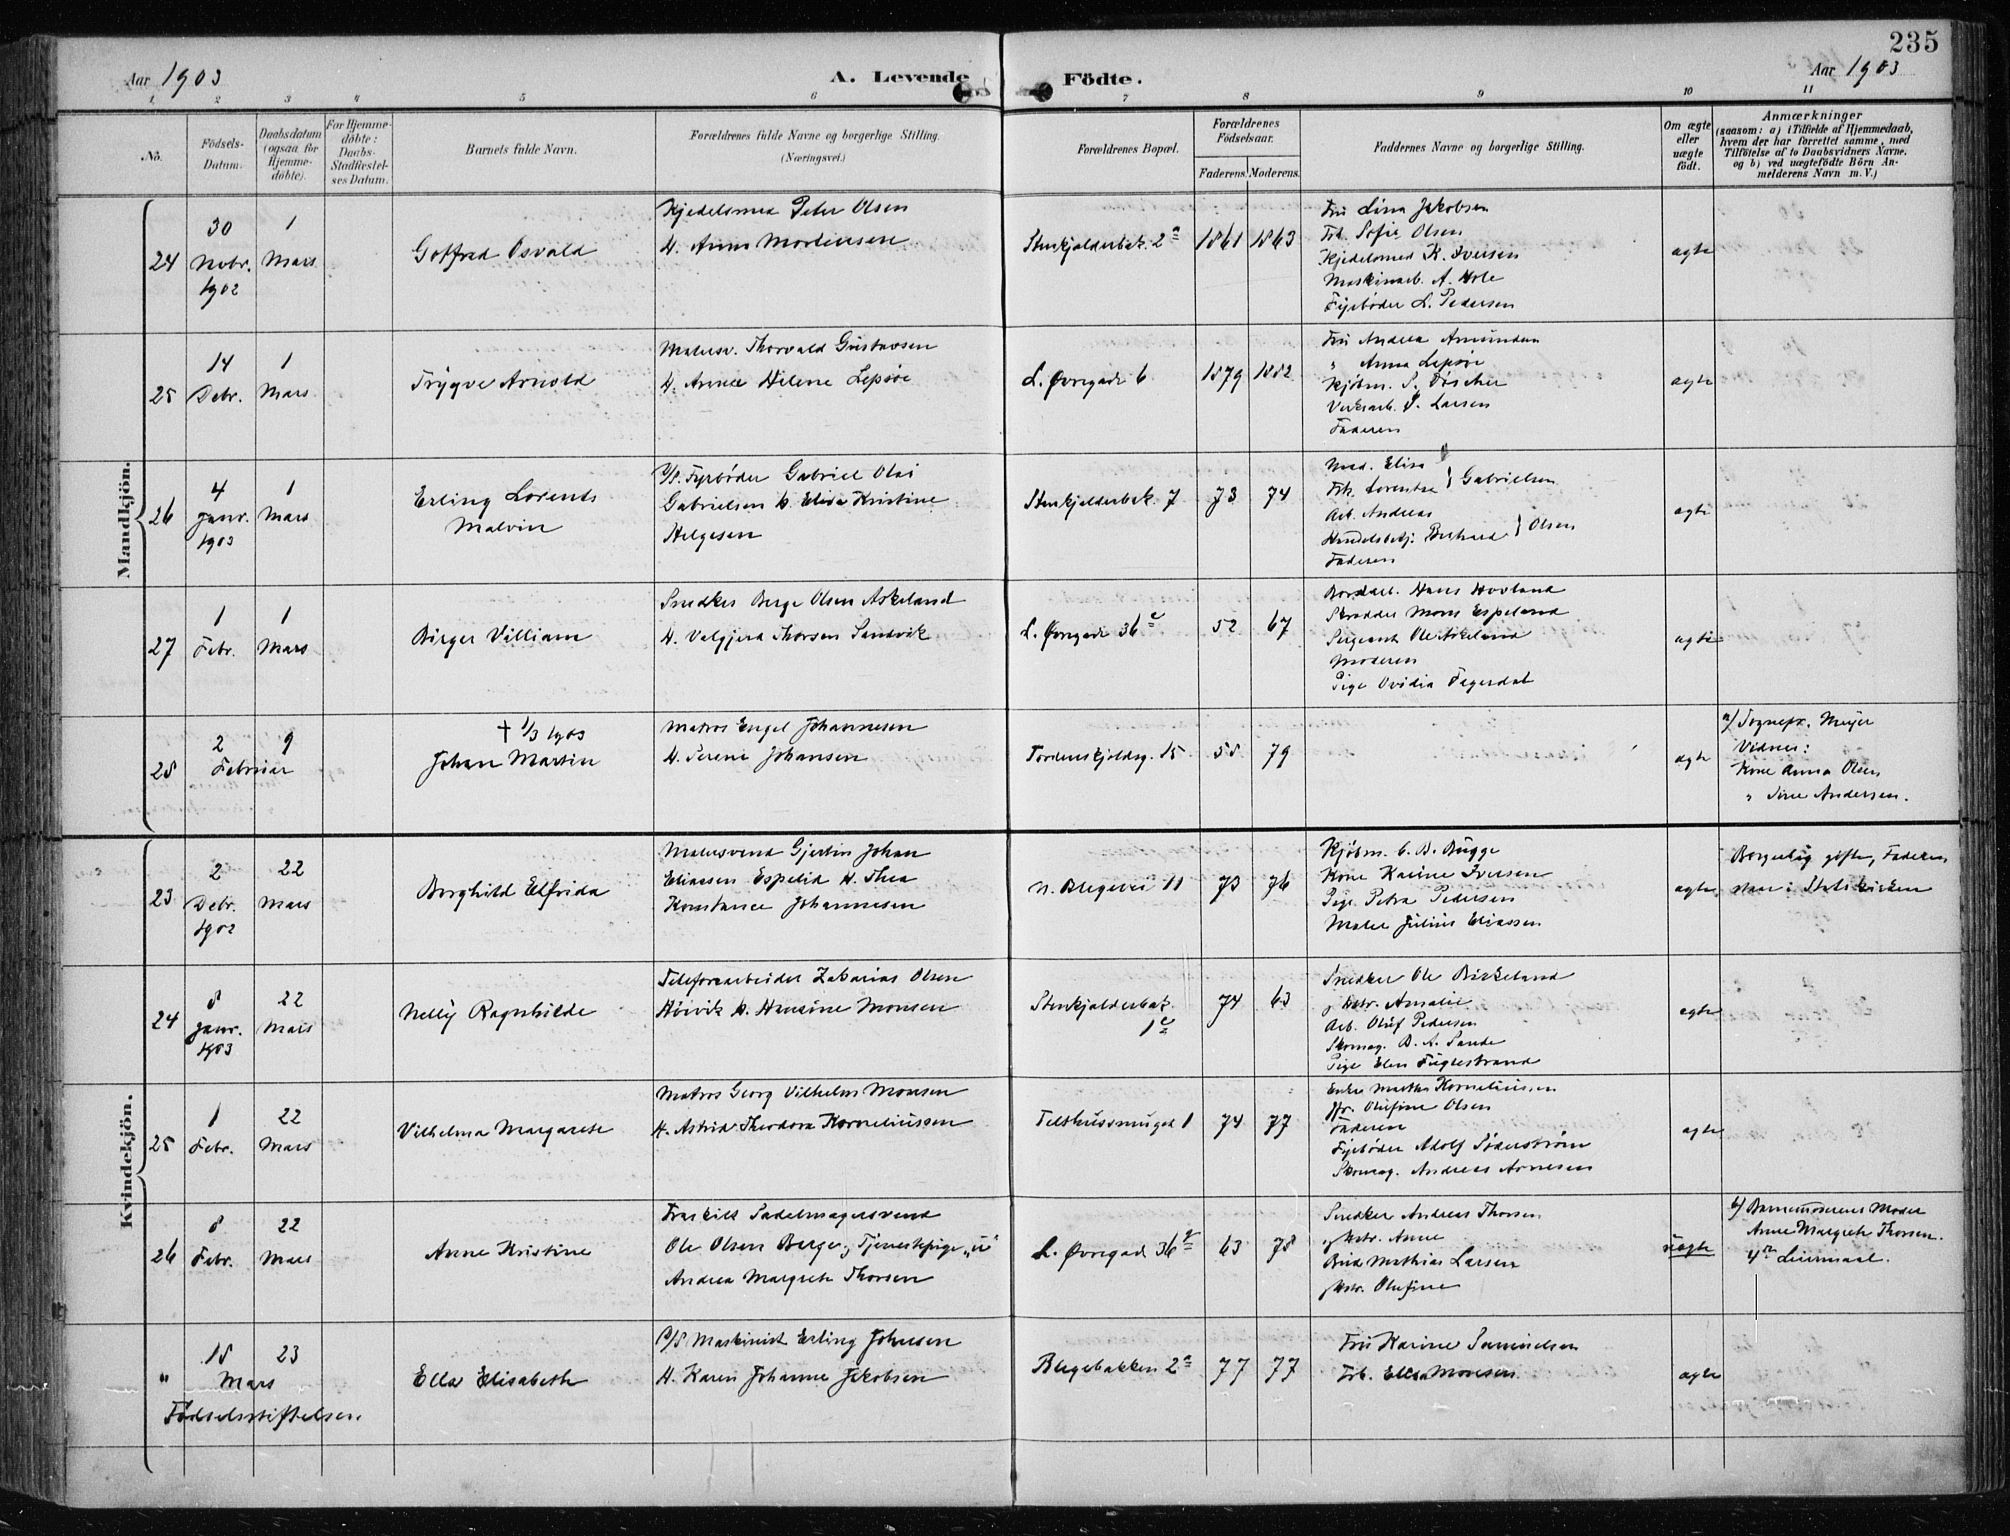 235
Aar 1903
A. Levende Födte.
Aar 1903
1 2 3 4 5 6 7 8 9 10 11
No.
Födsels-Datum.
Daabsdatum (ogsaa for Hjemme-döbte).
For Hjemme-döbte: Daabs-Stadfæstel-ses Datum.
Barnets fulde Navn.
Forældrenes fulde Navne og borgerlige Stilling.
(Næringsvei.)
Forældrenes Bopæl.
Forældrenes Födselsaar.
Faderens. Moderens.
Faddernes Navne og borgerlige Stilling.
Om ægte eller uægte födt.
Anmærkninger
(saasom: a) i Tilfælde af Hjemmedaab,
hvem der har forrettet samme, med
Tilföielse af to Daabsvidners Navne.
og b) ved uægtefödte Börn An-
melderens Navn m. V.)
Mandkjön.
24
30 Novbr. 1902
1 Mars
Gotfred Osvald
Kjedelsmed Peter Olsen
H. Anna Mortensen
Stenkjelderbak. 2a
1861 1863
Fru Lina Jakobsen
Frk. Sofie Olsen
Kjedelsmed K. Iversen
Maskinarb. A. Hole
Fyrbøder L. Pedersen
ægte
25
14 Debr.
1 Mars
Trygve Arnold
Malersv. Thorvald Gustavsen
H. Anna Helene Lepsøe
L. Øvregade 6
1879 1882
Fru Andrea Amundsen
" Anna Lepsøe
Kjøbm. S. Fischer
Verksarb. P. Larsen
Faderen
ægte
26
4 Janr. 1903
1 Mars
Erling Lorents
Malvin
D/S. Fyrbøder Gabriel Olai
Gabrielsen H. Elisa Kristine
Helgesen
Stenkjelderbak. 7
73 74
Mad. Elisa
Frk. Lorentse } Gabrielsen
Arb. Andreas
Handelsbetj. Berhard } Olsen
Faderen
ægte
27
1 Febr.
1 Mars
Birger Villiam
Snedker Berge Olsen Askeland
H. Valgjerd Thorsen Sandvik
L. Øvregade 36c
52 67
Bordarb. Hans Hovland
Skrædder Mons Espeland
Sergeant Ole Askeland
Moderen
Pige Ovidia Fagerdal
ægte
28
2 Februar
9
† 1/3 1903
Johan Martin
Matros Engel Johannesen
H. Serine Johansen
Tordenskjoldsg. 15
58 79
ægte
a/ Sognepr. Meyer
Vidner:
Kone Anna Olsen
" Sine Andersen.
Kvindekjön.
23
2 Debr. 1902
22 Mars
Borghild Elfrida
Malersvend Gjertin Johan
Eliassen Espelid H. Thea
Konstance Johannesen
N. Blegevei 11
73 76
Kjøbm. C. B. Bugge
Kone Karine Iversen
Pige Petra Pedersen
Maler Julius Eliassen
ægte
Borgerlig gifte, Faderen
staar i Statskirken
24
8 Janr. 1903
22 Mars
Nelly Ragnhilde
Telefonarbeider Zakarias Olsen
Høivik H. Hansine Monsen
Stenkjelderbak. 1c
74 63
Snedker Ole Birkeland
og Hstr. Amalie
Arb. Oluf Pedersen
Skomag. B. A. Sande
Pige Elen Fuglestrand
ægte
25
1 Febr.
22 Mars
Vilhelma Margarete
Matros Georg Vilhelm Monsen
H. Astrid Theodora Korneliussen
Felthussmuget 1
74 77
Enke Marthe Korneliussen
Jfr. Olufine Olsen
Faderen
Fyrbøder Adolf Söderström
Skomag. Andreas Arnesen
ægte
26
8 Febr.
22 Mars
Anne Kristine
Fraskilt Sadelmagersvend
Ole Olsen Berge, Tjenestepige „u“
Andrea Margrete Thorsen
L. Øvregade 36
63 78
Snedker Andreas Thorsen
og Hstr. Anne
Bud Mathias Larsen
og Hstr. Olufine
uægte
b/ Barnemoderens Moder
Anne Margrete Thorsen.
4de Leiermaal.
"
15 Mars
23
Fødselsstiftelsen.
Ella Elisabeth
D/S Maskinist Erling Johnsen
H. Karen Johanne Jakobsen
Blegebakken 2a
77 77
Fru Karine Samuelsen
Frk. Ella Monsen
ægte